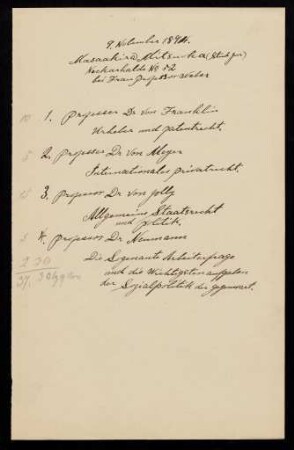 9. November 1894.
Masaakira
Neckarhalde No 52
bei Frau Professor Weber
10 1. Professor Dr von Franklin
Urheber und patentrecht.
5 2. Professor Dr von Meyer
Internationales privatrecht.
3. Professor Dr von Jolly
Allgemeine Staatsrecht
und politik.
5 4. Professor Dr Neumann
Die Sogenante Arbeiterfrage
und die Wichtigsten aufgaben
der Sozialpolitik der gegenwart.